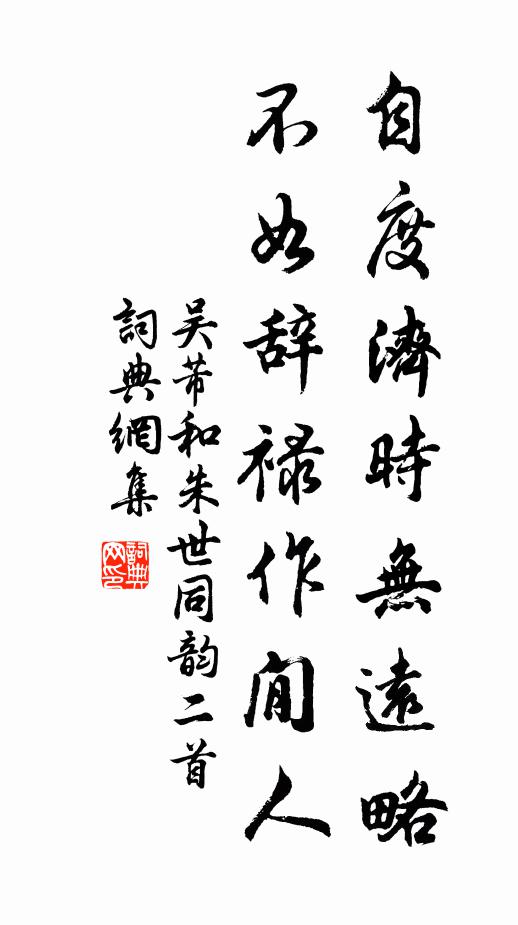 自度濟時無遠略
不如辞祿作閒人
吴芾和朱世同韵二首
詞典網集
詞典网印